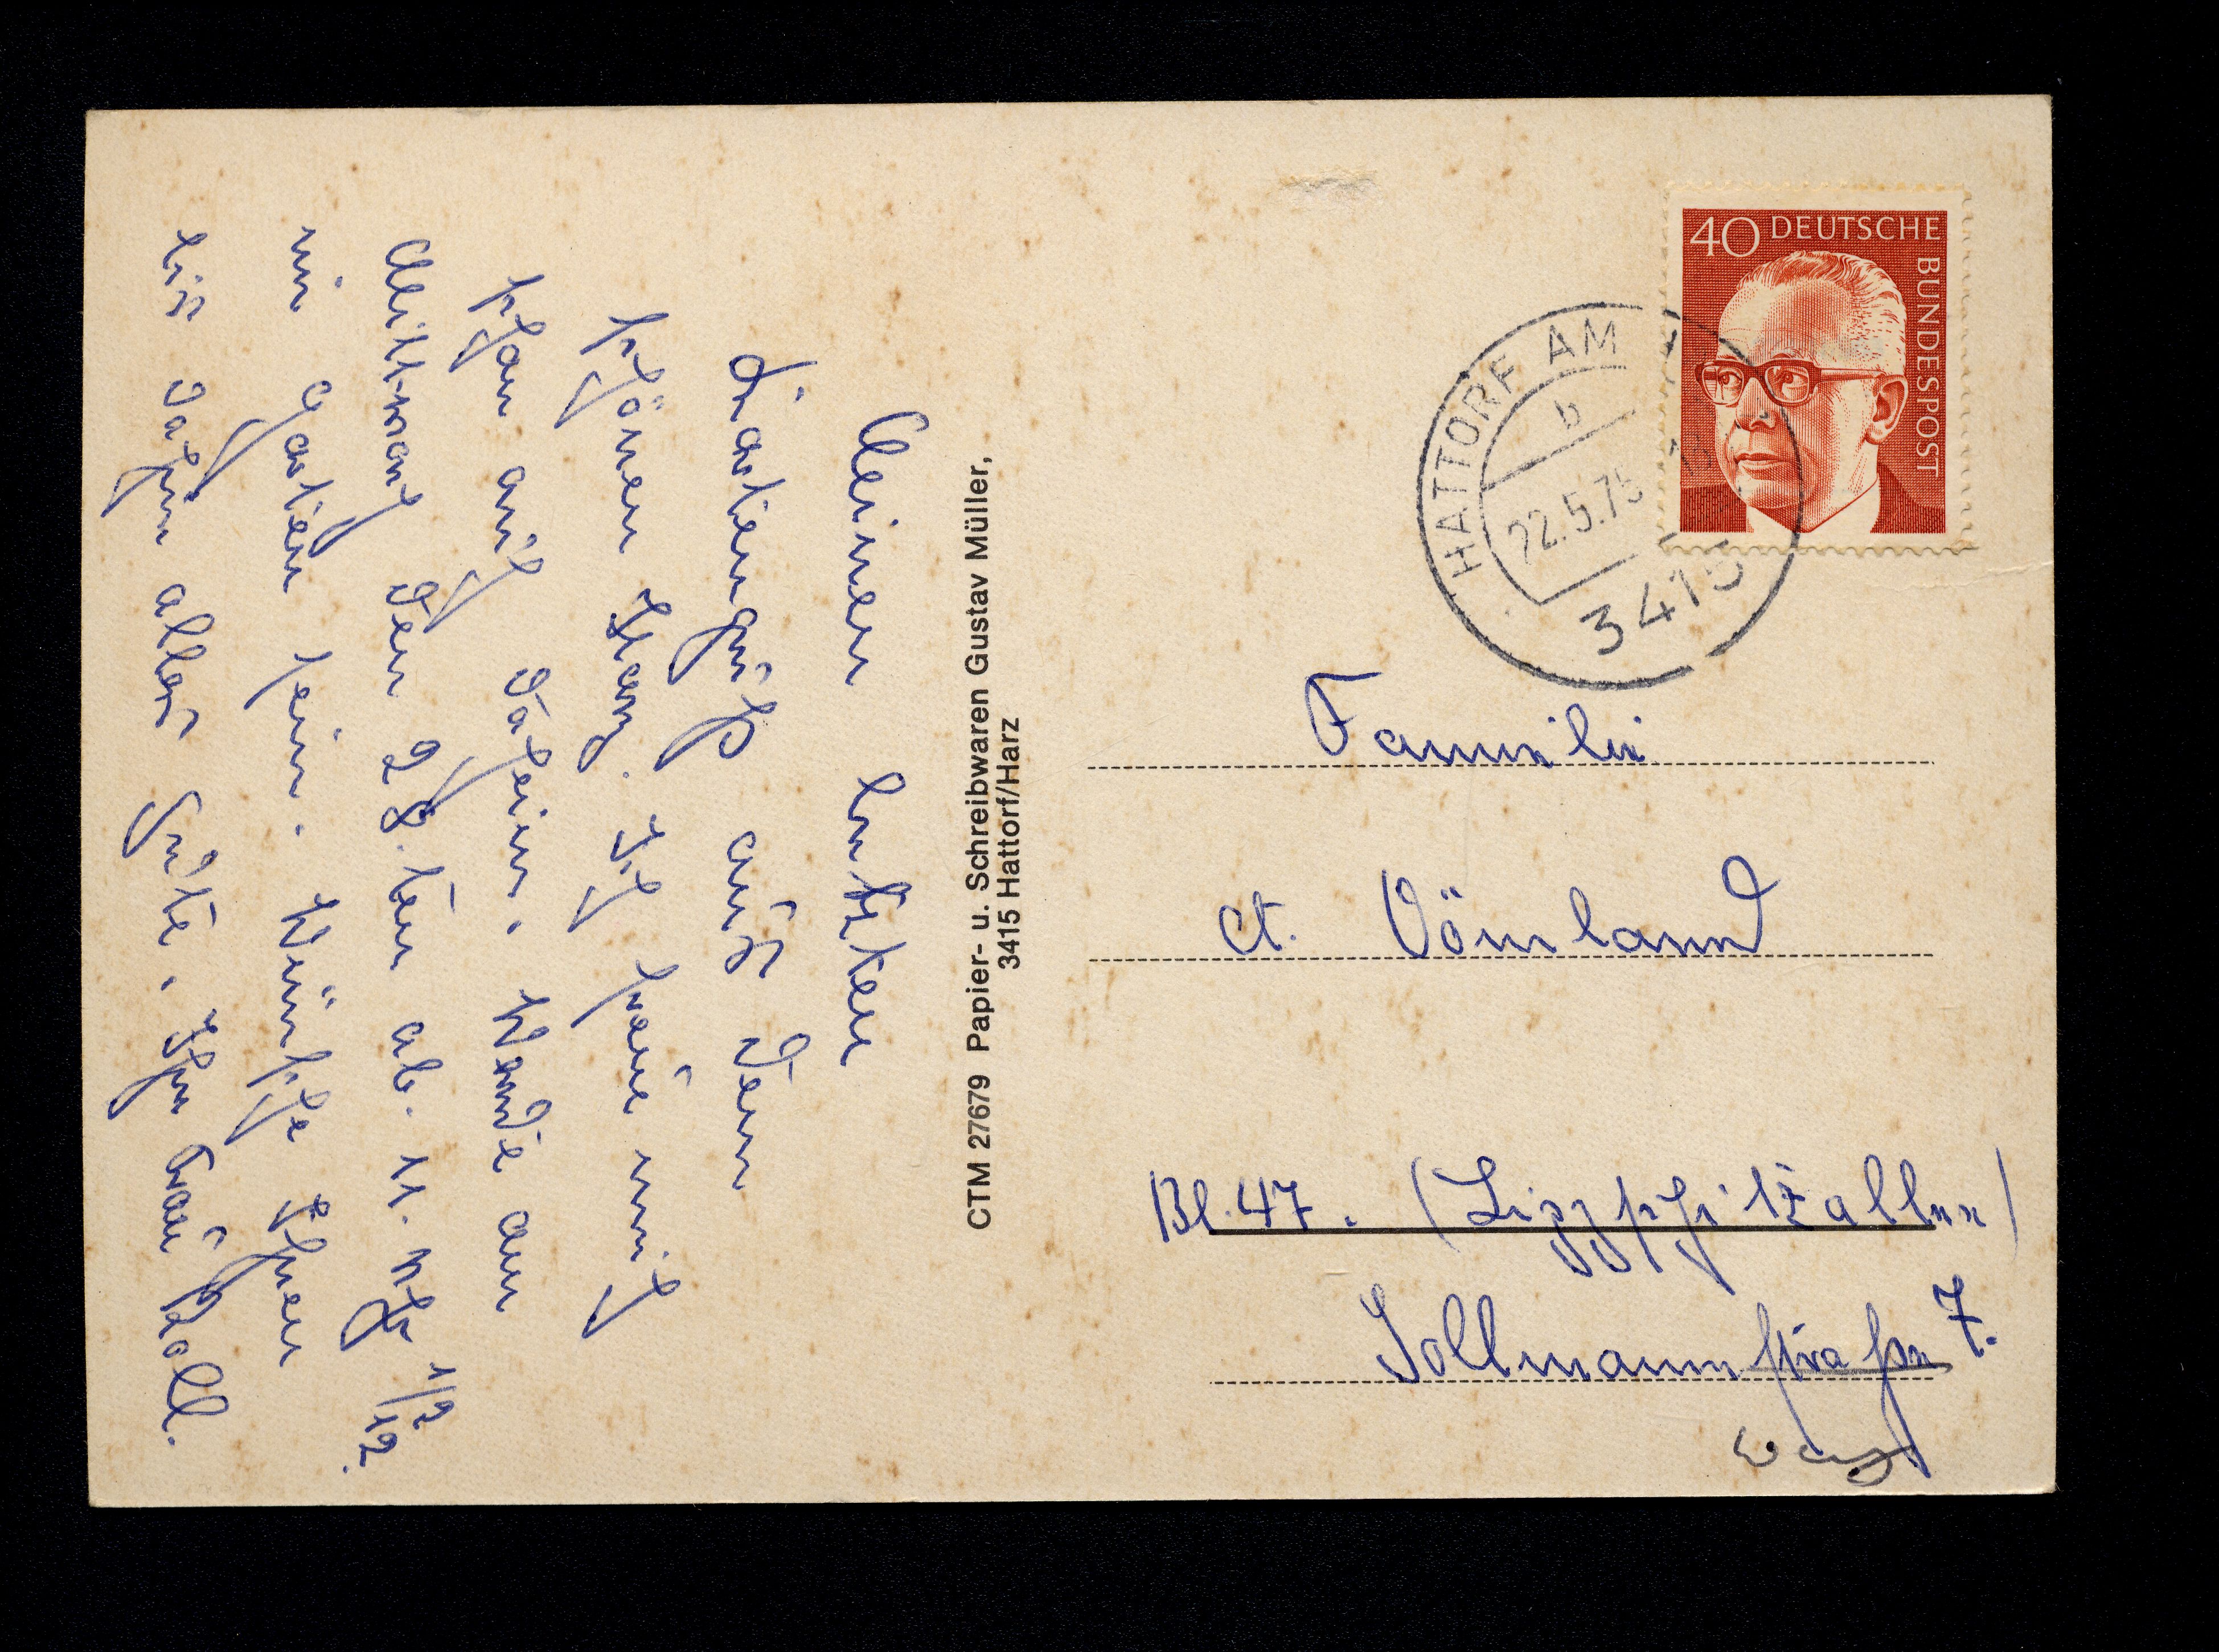 Meinen letzten
Kartengruß aus dem
schönen Harz. Ich freue mich
schon auf daheim. Werde am
Mittwoch den 28.ten ab. 11. Uhr 1/2 12.
im Garten sein. Wünsche Ihnen
bis dahin alles Gute. Ihre Frau Roll.
CTM 27679 Papier- u. Schreibwaren Gustav Müller,
3415 Hattorf/Harz
40 DEUTSCHE BUNDESPOST
HATTORF AM
b
22.5.75
3415
Familie
A. Vömland
Bl. 47. (Lippsche
Sollmannstraße 7.
weg